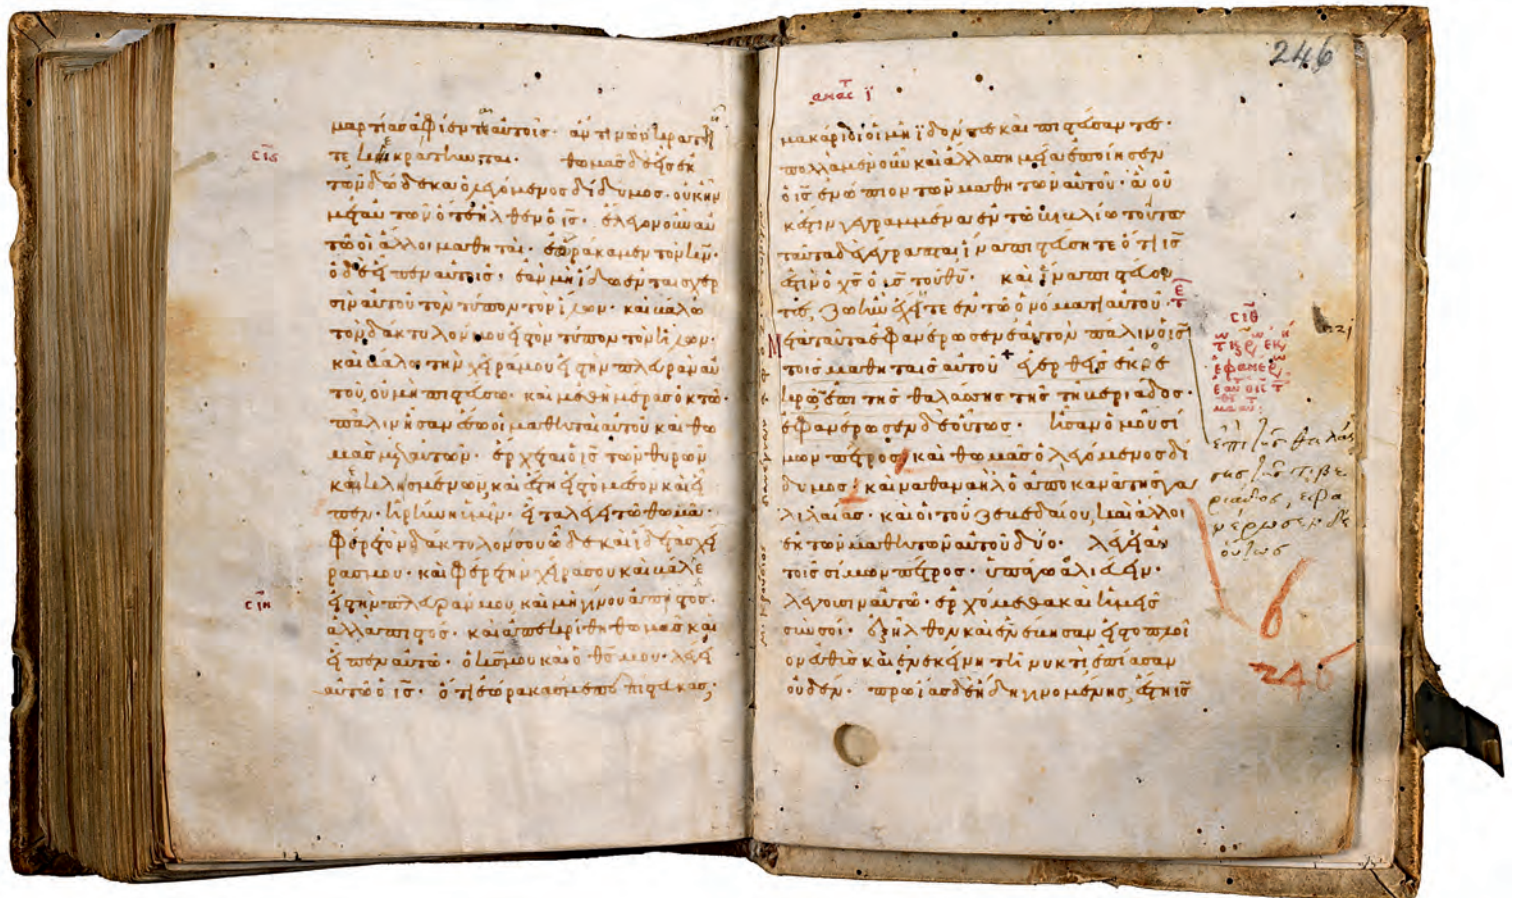 σιϛ
μαρτίασ ἀφίενται αὐτοῖσ· ἄν τινων κρατῆ
τε κεκράτηνται· θωμᾶσ δὲ εἷσ ἐκ
τῶν δώδεκα ὁ λεγόμενοσ δίδυμοσ· οὐκ ἦν
μετ αὐτῶν ὅτε ἦλθεν ὁ ι̅σ̅· ἔλεγον οὖν αὐ
τῶ οἱ ἄλλοι μαθηταί· ἑωράκαμεν τὸν κ̅ν̅·
ὁ δὲ εἶπεν αὐτοῖσ· ἐὰν μὴ ἴδω ἐν ταῖσ χερ
σὶν αὐτοῦ τὸν τύπον τῶν ἥλων· καὶ βάλω
τὸν δάκτυλόν μου εἰσ τὸν τύπον τῶν ἥλων·
καὶ βάλω τὴν χεῖρά μου εἰσ τὴν πλευρὰν αὐ
τοῦ, οὐ μὴ πιστεύσω· καὶ μεθ ἡμέρασ ὀκτώ·
πάλιν ἦσαν ἔσω οἱ μαθηταὶ αὐτοῦ καὶ θω
μᾶσ μετ αὐτῶν· ἔρχεται ὁ ι̅σ̅ τῶν θυρῶν
κεκλεισμένων, καὶ ἔστη εἰσ τὸ μέσον καὶ εἶ
πεν· εἰρήνη ὑμῖν· εἶτα λέγει τῶ θωμᾶ·
φέρε τὸν δάκτυλόν σου ὧδε καὶ ἴδε τὰσ χεῖ
ράσ μου· καὶ φέρε τὴν χεῖρά σου καὶ βάλε
σιη
εἰσ τὴν πλευράν μου, καὶ μὴ γίνου ἄπιστοσ·
ἀλλὰ πιστόσ· καὶ ἀπεκρίθη θωμᾶσ καὶ
εἶπεν αὐτῶ· ὁ κ̅σ̅ μου καὶ ὁ θ̅σ̅ μου· λέγει
αὐτῶ ὁ ι̅σ̅· ὅτι ἑώρακάσ με πεπίστευκασ;
246
μακάριοι οἱ μὴ ἰδόντεσ καὶ πιστεύσαντεσ·
πολλὰ μὲν οὖν καὶ ἄλλα σημεῖα ἐποίησεν
ὁ ι̅σ̅ ἐνώπιον τῶν μαθητῶν αὐτοῦ· ἃ οὐ
κ ἔστιν γεγραμμένα ἐν τῶ βιβλίω τούτω
ταῦτα δὲ γέγραπται ἵνα πιστεύσητε ὅτι ι̅σ̅
ἐστιν ὁ χ̅σ̅ ὁ υ̅σ̅ τοῦ θ̅υ̅· καὶ ἵνα πιστεύον
τεσ, ζωὴν ἔχητε ἐν τῶ ὀνόματι αὐτοῦ·
Μετὰ ταῦτα ἐφανέρωσεν ἑαυτὸν πάλιν ὁ ι̅σ̅
τοῖσ μαθηταῖσ αὐτοῦ + ἐγερθεὶσ ἐκ νε
κρῶν ἐπὶ τῆσ θαλάσσησ τῆσ τιβεριάδοσ·
ἐφανέρωσεν δὲ οὕτωσ· ἦσαν ὁμοῦ σί
μων πέτροσ, καὶ θωμᾶσ ὁ λεγόμενοσ δί
δυμοσ· καὶ ναθαναὴλ ὁ ἀπὸ κανᾶ τῆσ γα
λιλαίασ· καὶ οἱ τοῦ ζεβεδαίου, καὶ ἄλλοι
ἐκ τῶν μαθητῶν αὐτοῦ δύο· λέγει αὐ
τοῖσ σίμων πέτροσ· ὑπάγω ἁλιεύειν·
λέγουσιν αὐτῶ· ἐρχόμεθα καὶ ἡμεῖσ
σὺν σοί· ἐξῆλθον καὶ ἐνέβησαν εἰσ τὸ πλοῖ
ον εὐθὺσ καὶ ἐν ἐκείνη τῆ νυκτὶ ἐπίασαν
οὐδέν· πρωΐασ δὲ ἤδη γινομένησ, ἔστη ι̅σ̅
σιθ
ἐπὶ τῆς θαλάσ
σης τῆς τιβε
ριάδος, ἐφα
νέρωσεν δὲ
οὕτως
6
246